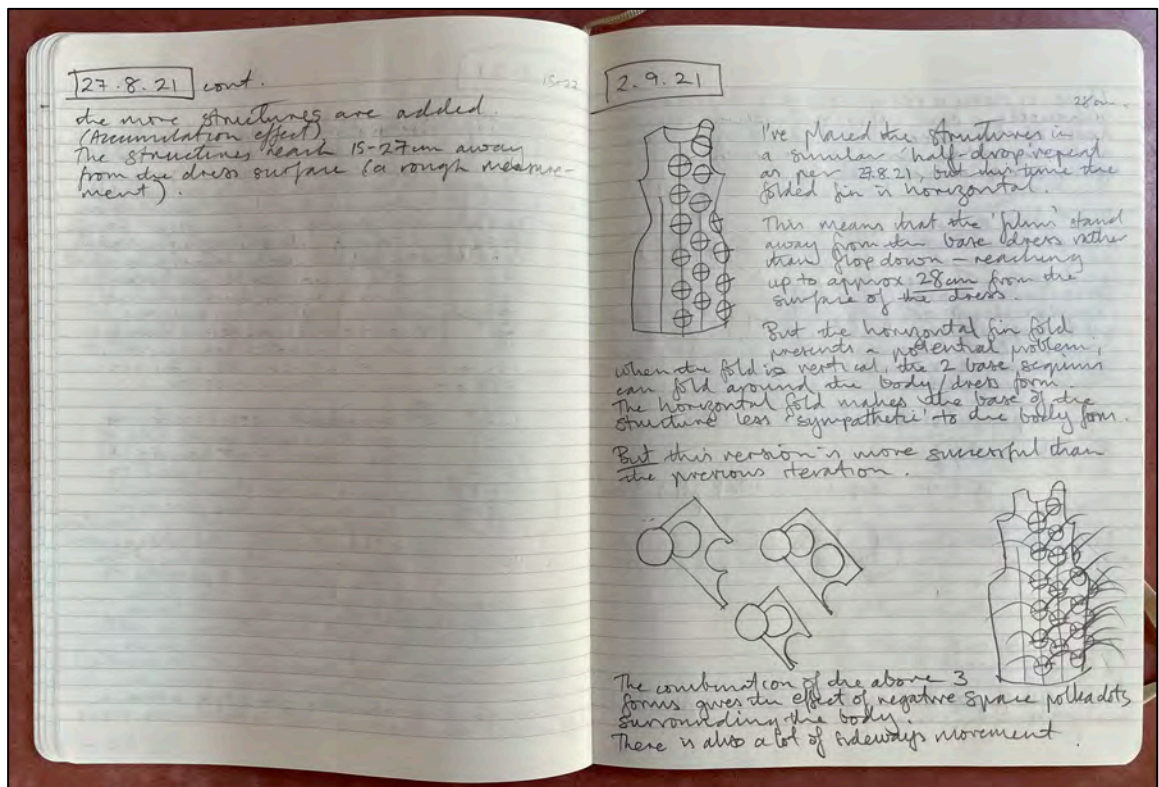 27.8.21 cont.
15-22
the more structures are added.
(Accumulation effect)
The structures reach 15-27cm away
from the dress surface (a rough measure-
ment).
2.9.21
28cm.
I've placed the structures in
a similar 'half-drop' repeat
as per 27.8.21, but this time the
folded fin is horizontal.
This means that the 'films' stand
away from the base dress rather
than flop down – reaching
up to approx 28cm from the
surface of the dress.
But the horizontal fin fold
presents a potential problem;
when the fold is vertical, the 2 base sequins
can fold around the body/dress form.
The horizontal fold makes the base of the
structure less 'sympathetic' to the body form.
But this version is more successful than
the previous iteration.
The combination of the above 3
forms gives the effect of negative space polkadots
surrounding the body.
There is also a lot of sideways movement.